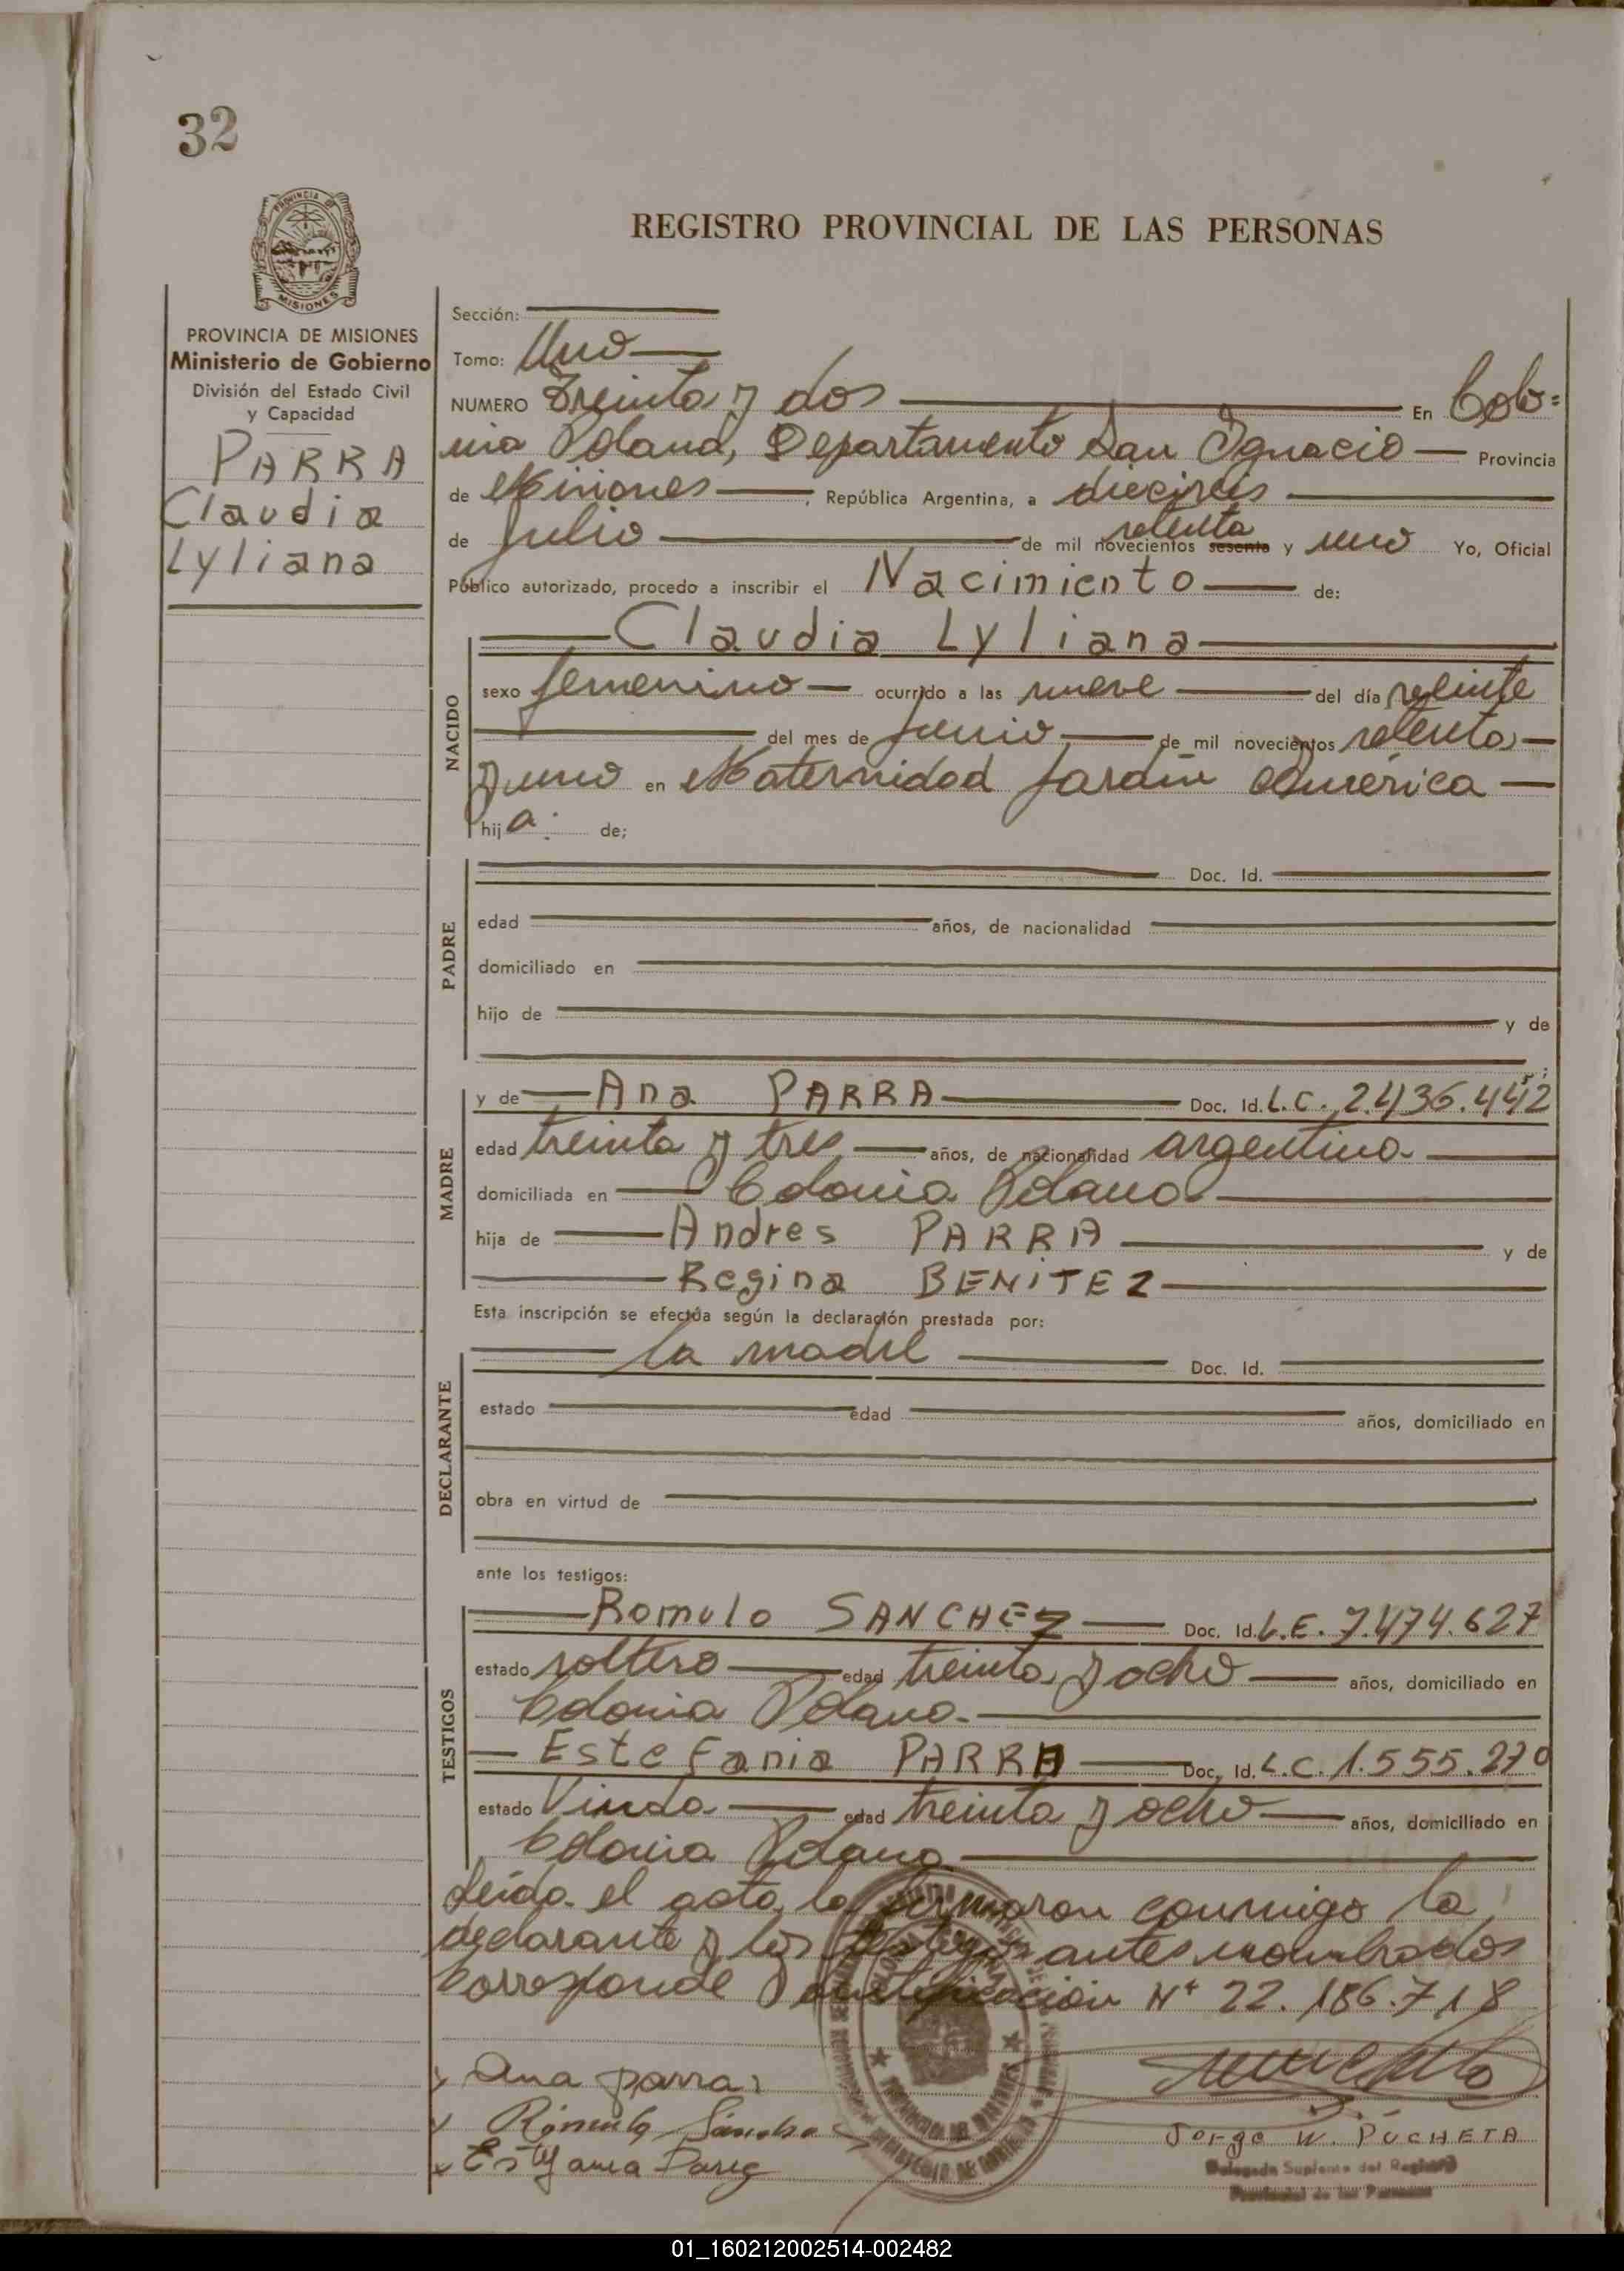 32
PROVINCIA DE
MISIONES
REGISTRO PROVINCIAL DE LAS PERSONAS
PROVINCIA DE MISIONES
Ministerio de Gobierno
División del Estado Civil
y Capacidad
PARRA
Claudia
Lyliana
Sección:
Tomo: Uno
NUMERO Treinta y dos En Colo=
nia Polana, Departamento San Ignacio Provincia
de Misiones, República Argentina, a dieciseis
de Julio de mil novecientos sesenta setenta y uno Yo, Oficial
Público autorizado, procedo a inscribir el Nacimiento de:
Claudia Lyliana
NACIDO
sexo femenino ocurrido a las nueve del día veinte
del mes de Junio de mil novecientos setenta
y uno en Maternidad Jardín América
hija de;
PADRE
Doc. Id.
edad años, de nacionalidad
domiciliado en
hijo de y de
MADRE
y de Ana PARRA Doc. Id. L.C. 2.436.442
edad treinta y tres años, de nacionalidad argentina
domiciliada en Colonia Polana
hija de Andres PARRA y de
Regina BENITEZ
Esta inscripción se efectúa según la declaración prestada por:
DECLARANTE
la madre Doc. Id.
estado edad años, domiciliado en
obra en virtud de
ante los testigos:
TESTIGOS
Romulo SANCHEZ Doc. Id. L.E. 7.474.627
estado soltero edad treinta y ocho años, domiciliado en
Colonia Polana
Estefania PARRA Doc. Id. L.C. 1.555.270
estado Viuda edad treinta y ocho años, domiciliado en
Colonia Polana
Leída el acta, la firmaron conmigo la
declarante y los testigos antes nombrados
Corresponde identificación Nº 22.186.718
Ana parra
Rómulo Sánche
Estefania Parra
Jorge W. PUCHETA
Delegado Suplente del Registro
Provincial de las Personas
01_160212002514-002482